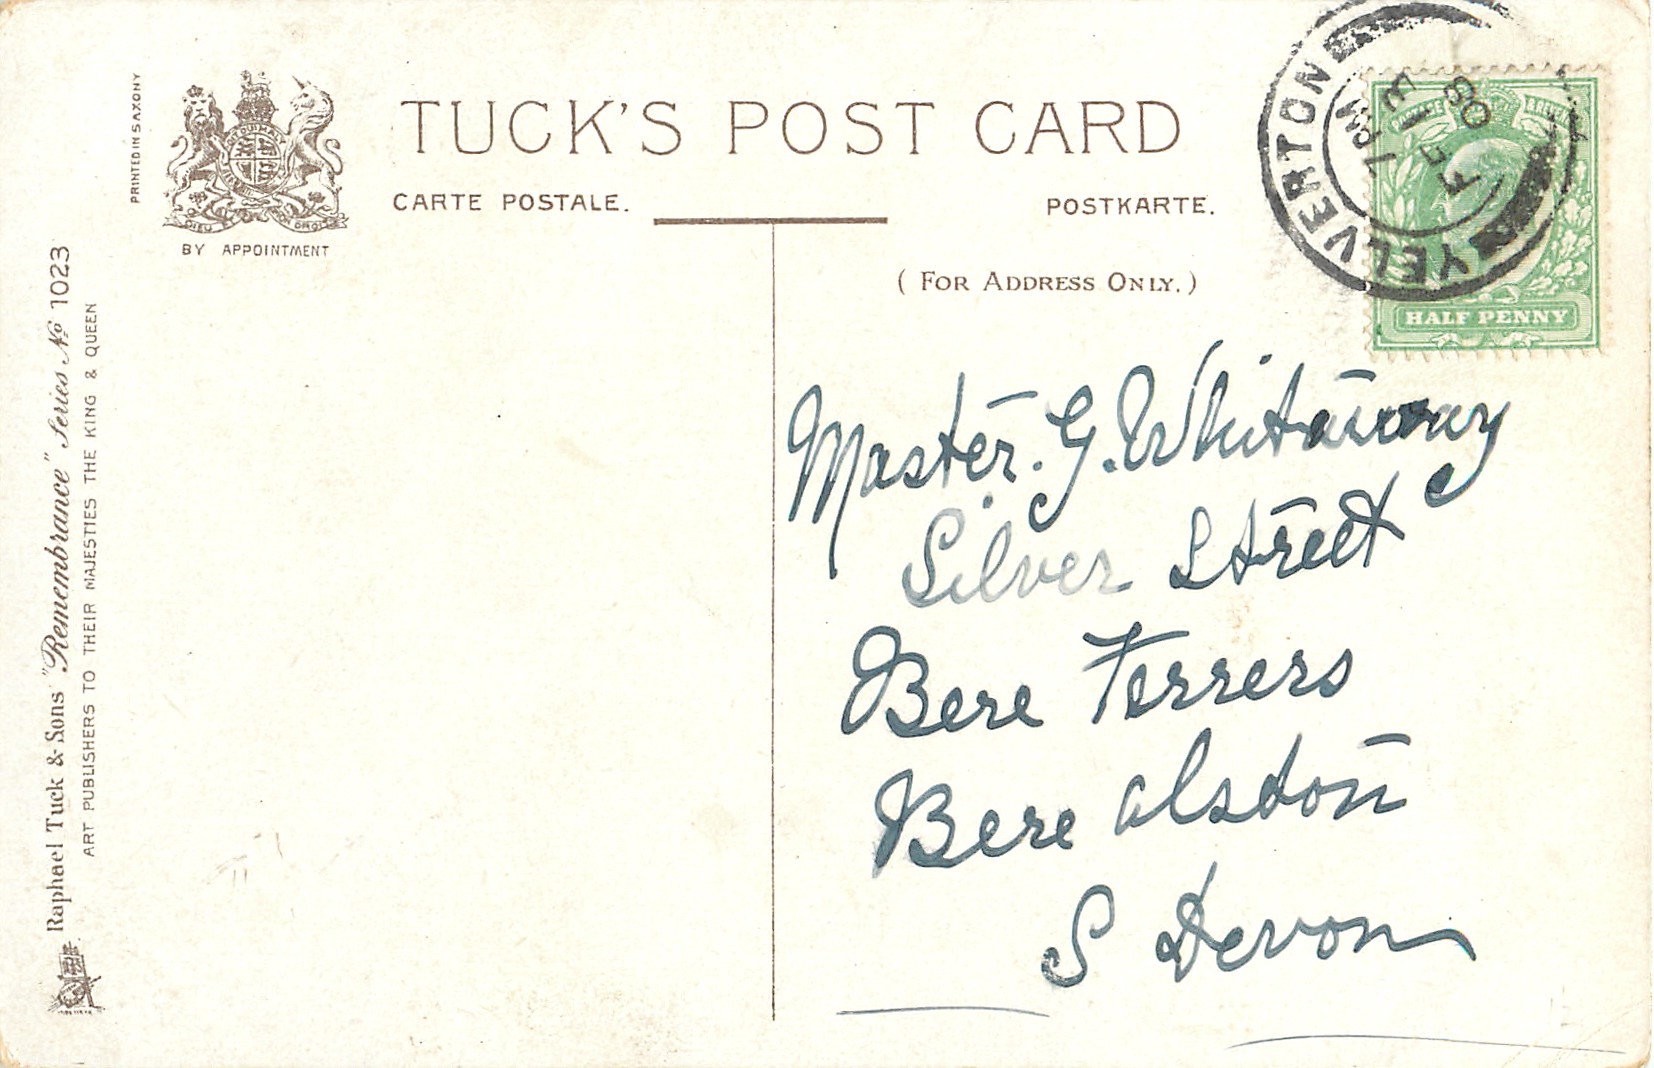 PRINTED IN SAXONY
BY APPOINTMENT
TUCK'S POST CARD
CARTE POSTALE.
POSTKARTE.
( FOR ADDRESS ONLY. )
YELVERTON
7 PM
FE 13
08
HALF PENNY
Master. G. Whitaway
Silver Street
Bere Ferrers
Bere alston
S Devon
Raphael Tuck & Sons' "Remembrance" Series No 1023
ART PUBLISHERS TO THEIR MAJESTIES THE KING & QUEEN